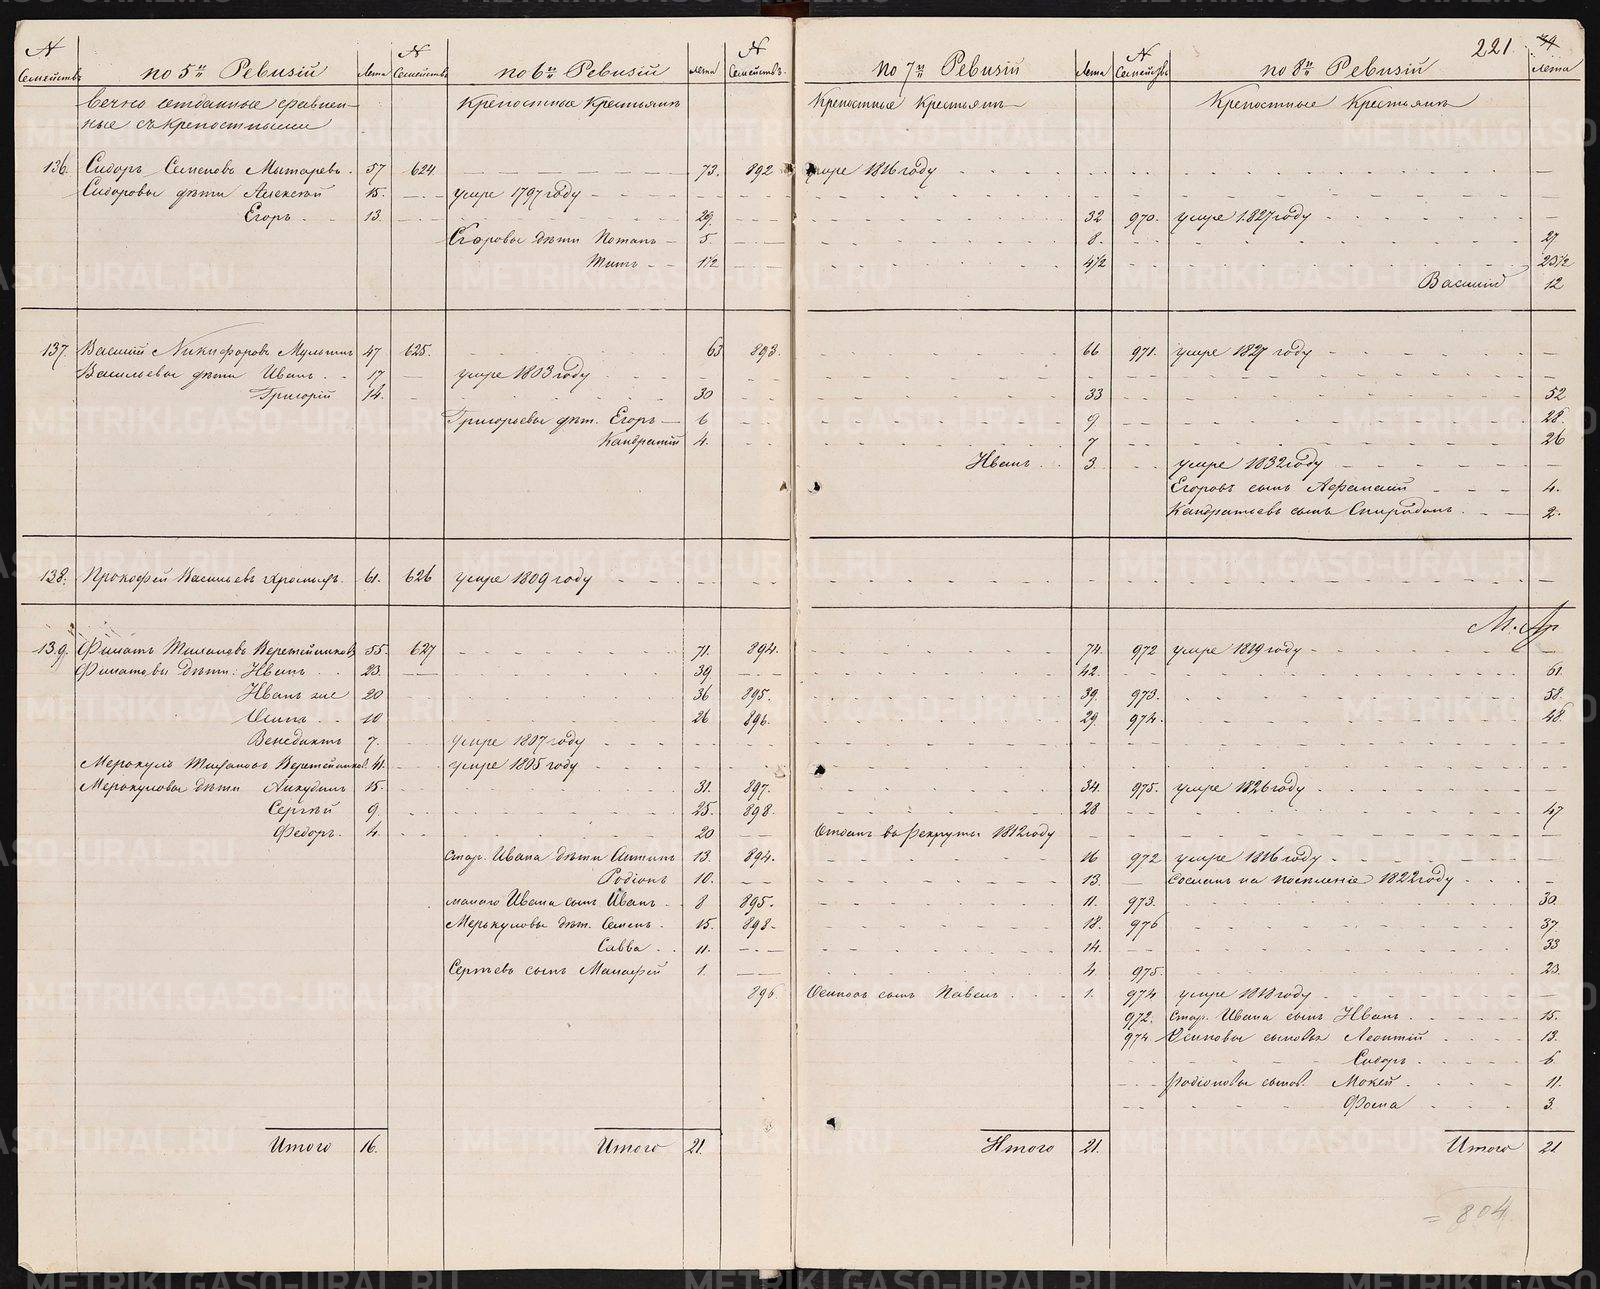 221. 34
№ Семействъ по 5й Ревизіи Лета № Семействъ по 6й Ревизіи Лета № Семействъ по 7й Ревизіи Лета № Семействъ по 8й Ревизіи Лета
вечно отданные сравнен- Крепостные Крестьянъ Крепостные Крестьянъ Крепостные Крестьянъ
ные съ крепостными
136. Сидоръ Семеновъ Мытаревъ. 57 624 73. 892 умре 1816 году
Сидоровы дѣти Алексѣй 15. умре 1797 году
Егоръ 13. 29. 32 970. умре 1827 году
Егоровы дѣти Потапъ 5. 8. 27
Титъ 1 1/2 4 1/2 23 1/2
Василій 12
137. Василій Никифоровъ 47 625. 63 893. 66 971. умре 1827 году
Васильевы дѣти Иванъ 17 умре 1803 году
Григорій 14. 30 33 52
Григорьевы дѣт. Егоръ 6 9 28.
Кандратій 4. 7 26
Иванъ 3 умре 1832 году
Егоровъ сынъ Афанасій 4.
Кандратьевъ сынъ Спиридонъ 2.
138. Прокофей Васильевъ 61. 626 умре 1809 году
139. Филатъ Веретейниковъ 55. 627 71. 894. 74. 972 умре 1819 году
Филатовы дѣти: Иванъ 23. 39 42. 61.
Иванъ же 20 36 895. 39. 973. 58.
Осипъ 10 26 896. 29. 974. 48.
Венедиктъ 7. умре 1807 году
Меркулъ Веретейниковъ 41. умре 1805 году
Меркуловы дѣти Анкудинъ 15. 31. 897. 34. 975. умре 1826 году
Сергѣй 9. 25. 898. 28 47
Федоръ 4. 20 Отданъ въ рекруты 1812 году
Стар. Ивана дѣти Антипъ 13. 894. 16 972 умре 1816 году
Родіонъ 10. 13. Сосланъ на поселеніе 1822 году
малаго Ивана сынъ Иванъ 8 895. 11. 973. 30.
Меркуловы дѣт. Семенъ 15. 898. 18. 976 37.
Савва 11. 14. 33
Сергѣевъ сынъ Манафей 1. 4. 975. 23.
896. Осиповъ сынъ Павелъ 1. 974 умре 1818 году
972. Стар. Ивана сынъ Иванъ 15.
974. Осиповы сыновья Леонтій 13.
Сидоръ 6
Родіоновы сынов. Мокей 11.
Фома 3.
Итого 16. Итого 21. Итого 21. Итого 21
= 804
METRIKI.GASO-URAL.RU